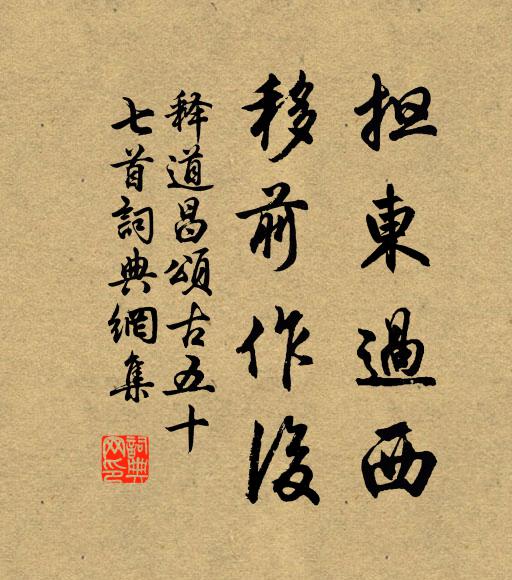 担東過西
移前作後
释道昌頌古五十
七首詞典網集
詞典
网印